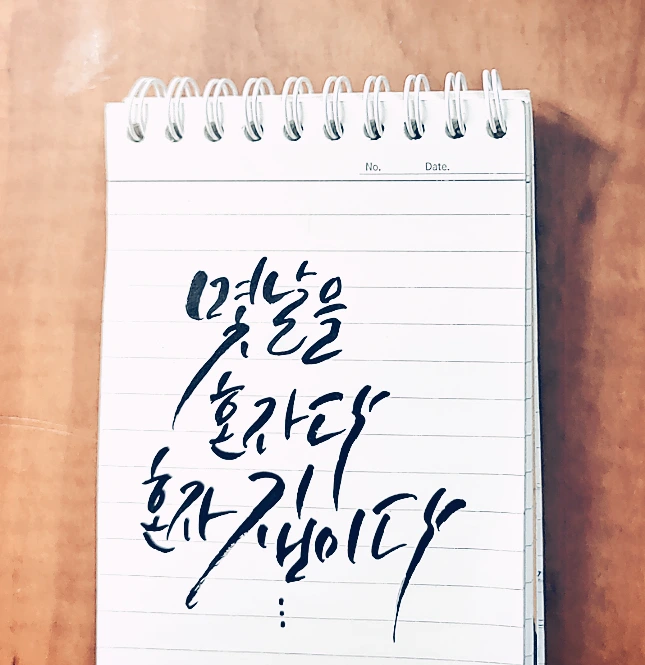 No. Date.
몇날을
혼자다
혼자걷는이다
⋮